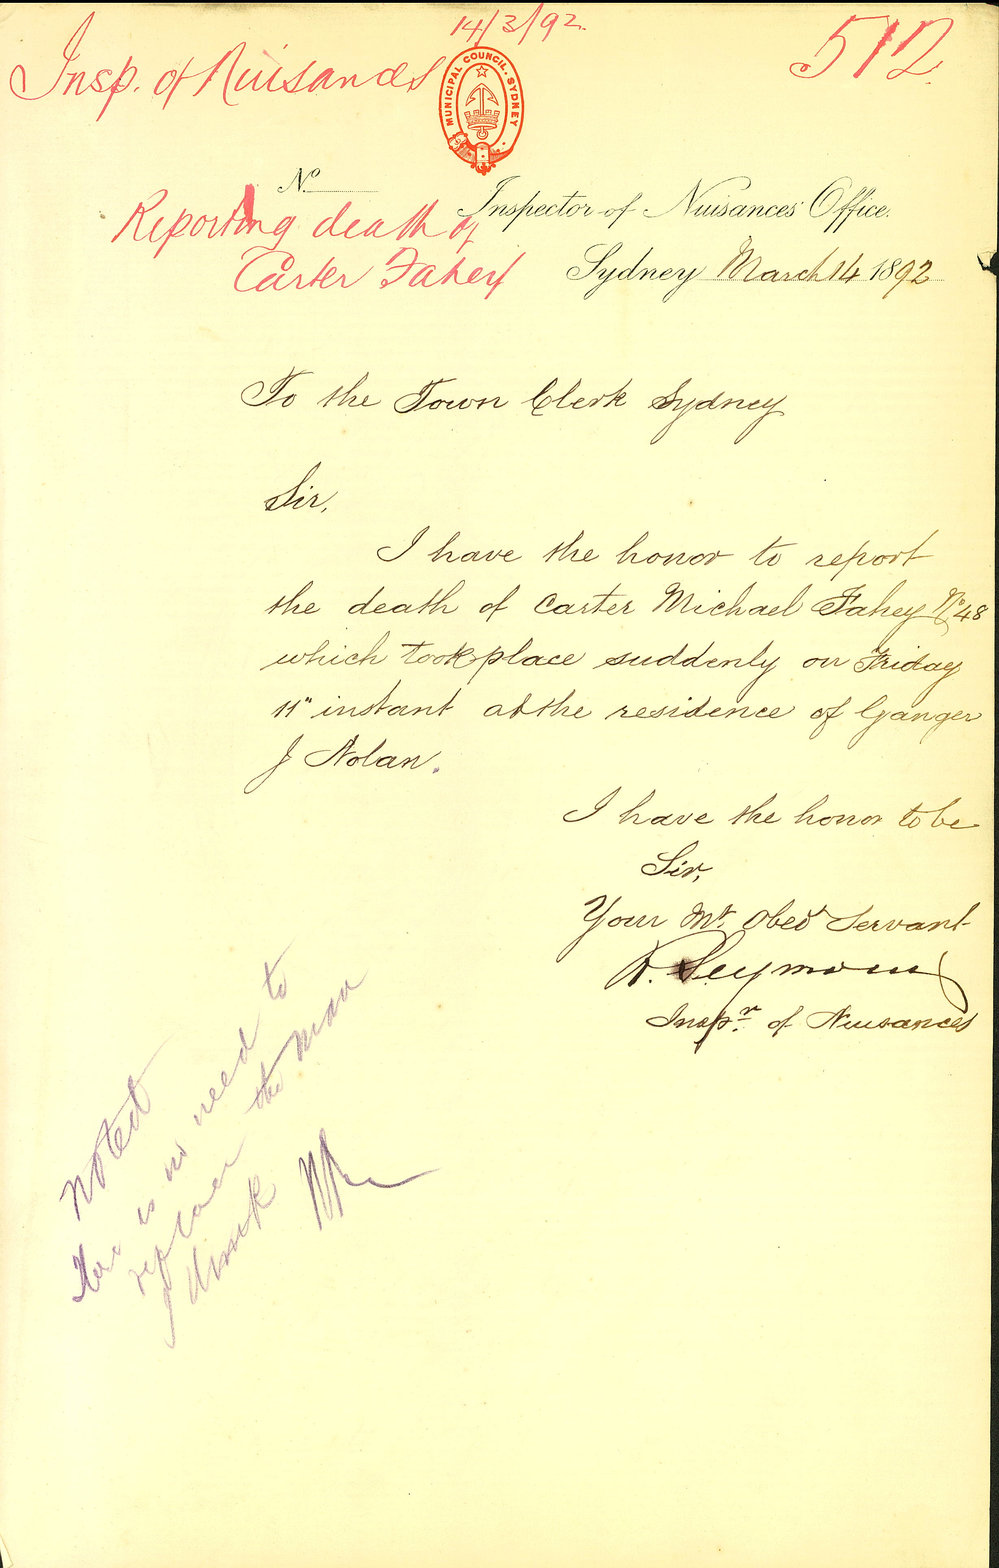 14/3/92.
Insp. of Nuisances
512
MUNICIPAL COUNCIL. SYDNEY.
No
Inspector of Nuisances' Office.
Reporting death of
Carter Fahey
Sydney March 14 1892
To the Town Clerk Sydney
Sir,
I have the honor to report
the death of Carter Michael Fahey No 48
which took place suddenly on Friday
11" instant at the residence of Ganger
J Nolan.
I have the honor to be
Sir,
Your Mt. Obed Servant
R. Seymour
Inspr. of Nuisances
Noted
there is no need to
replace the man
I think